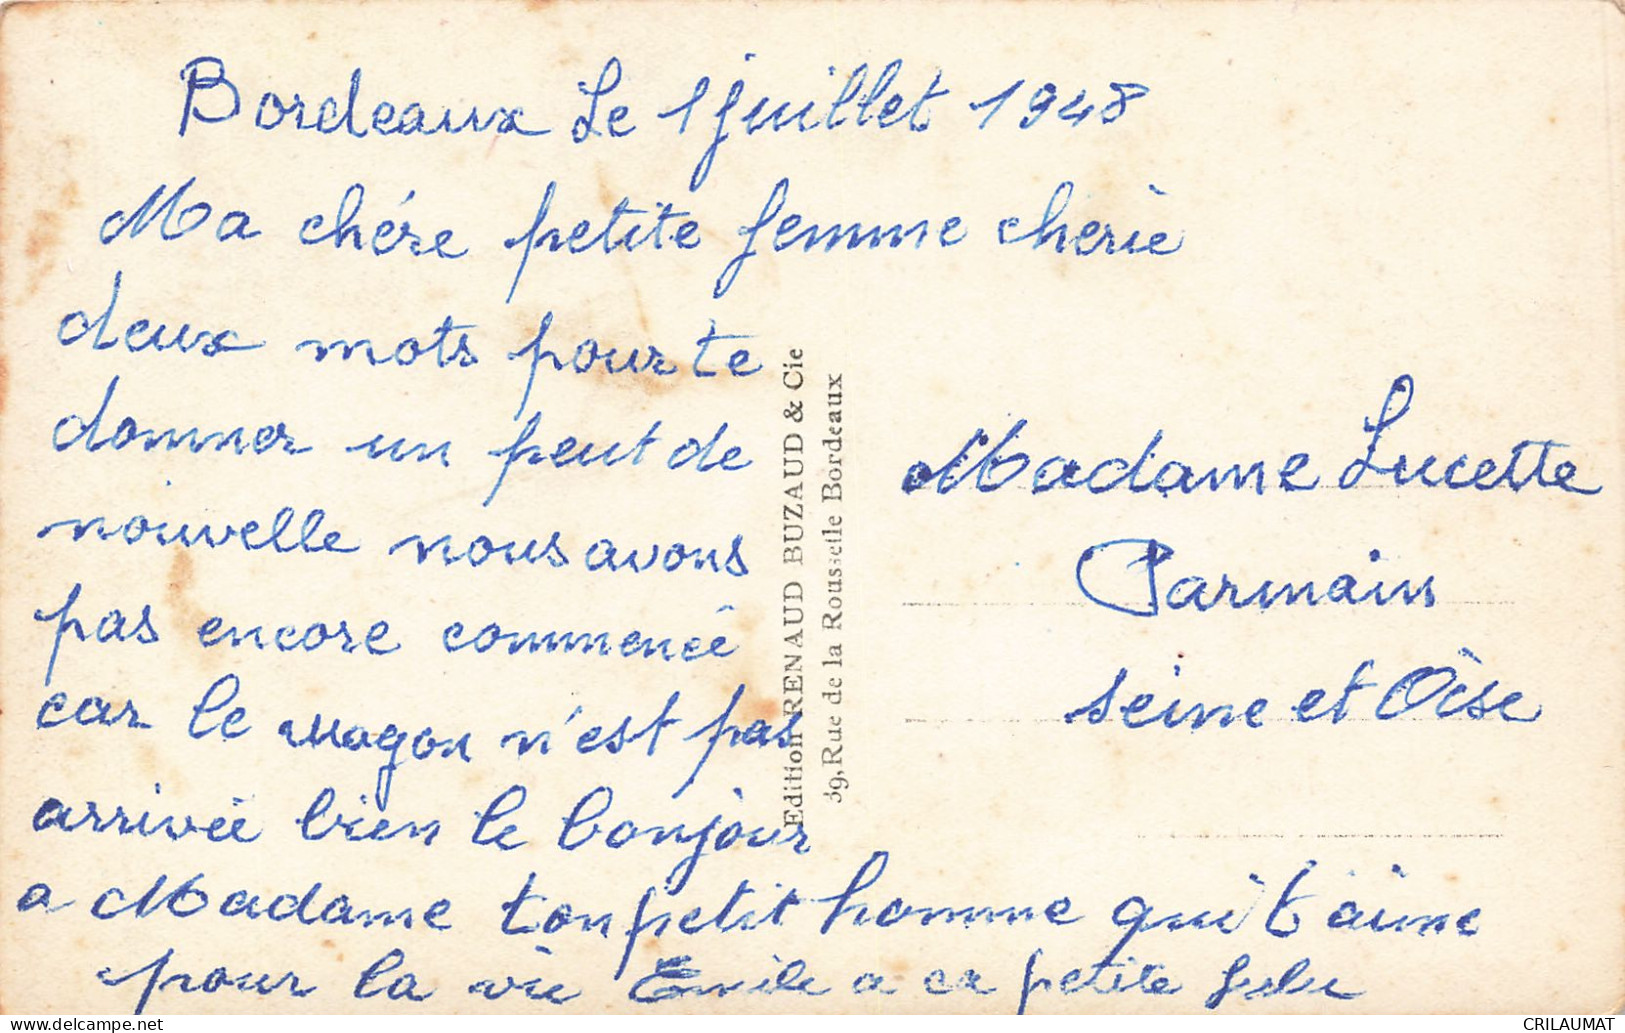 Bordeaux Le 1 juillet 1948
Ma chére petite femme cherie
deux mots pour te
donner un peut de
nouvelle nous avons
pas encore commencé
car le wagon n'est pas
arrivée bien le bonjour
a Madame ton petit homme qui t'aime
pour la vie Emile a ca petite
Edition RENAUD BUZAUD & Cie
39, Rue de la Rousselle Bordeaux
Madame Lucette
Parmain
seine et Oise
CRILAUMAT
delcampe.net